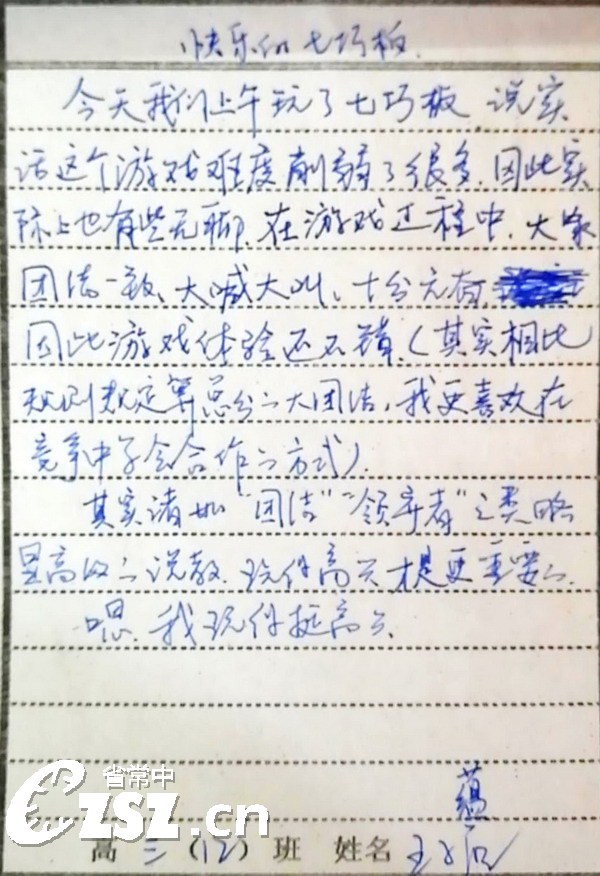 快乐的七巧板
今天我们上午玩了七巧板,说实
话这个游戏难度削弱了很多,因此实
际上也有些无聊.在游戏过程中,大家
团结一致、大喊大叫、十分
因此游戏体验还不错.(其实相比
规则规定算总分的大团结,我更喜欢在
竞争中学会合作的方式).
其实诸如“团结”“领导者”之类略
显高的说教.玩得高兴才是更重要的.
嗯.我玩得挺高兴.
省常中
CZSZ.cn
蕴
高三(12)班 姓名 王